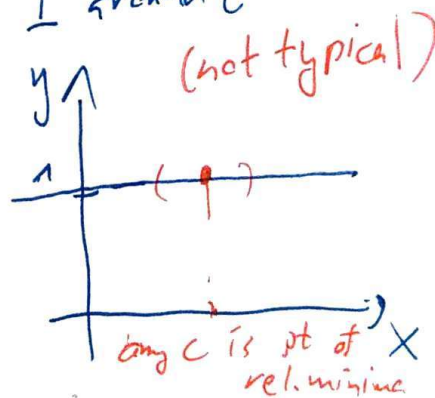 (not typical)
y
1
any c is pt of
x
rel. minima